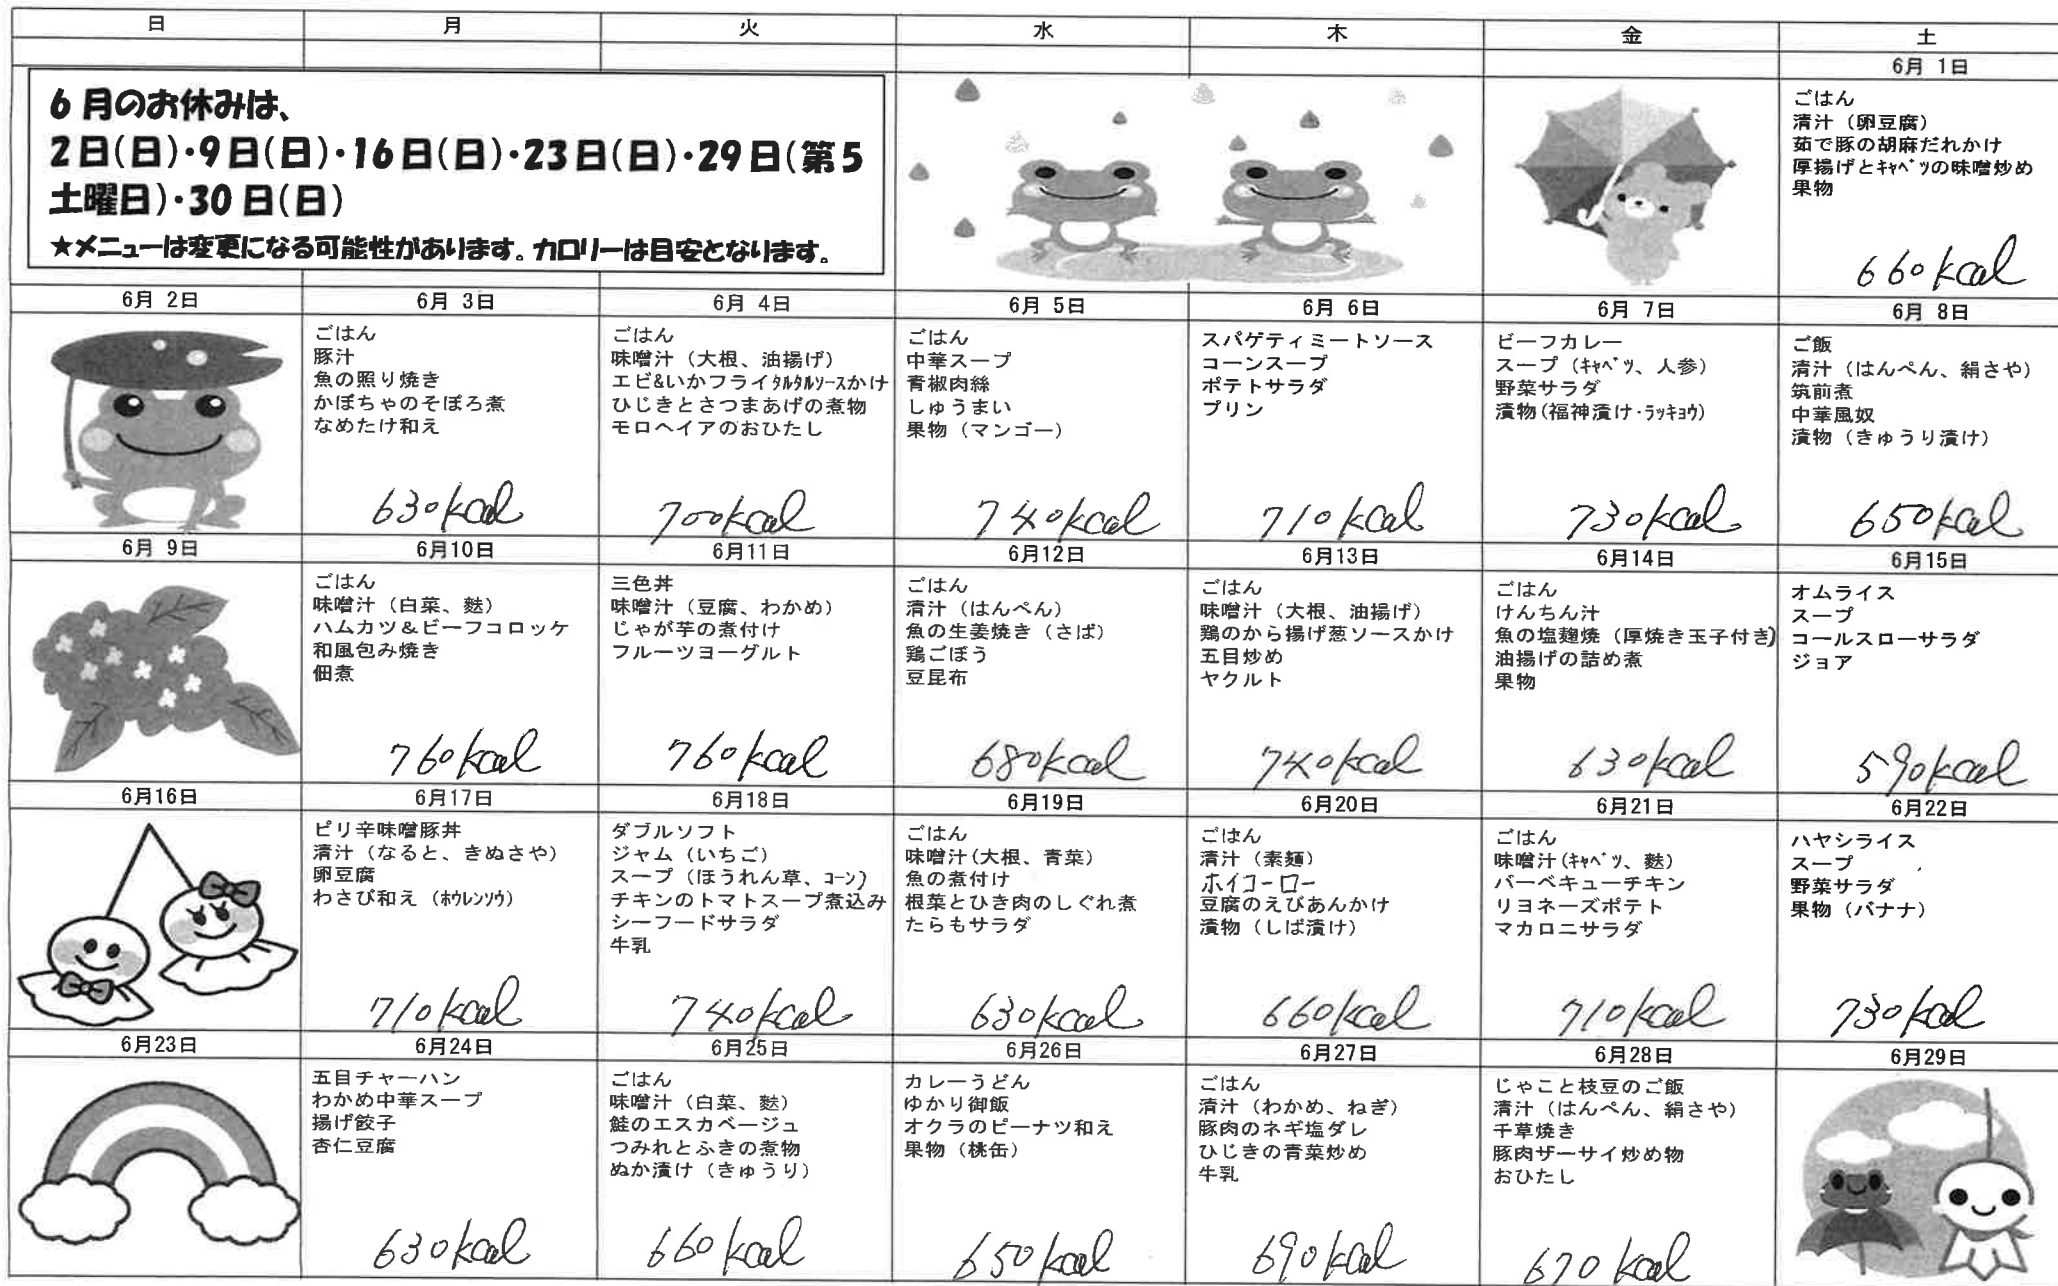 日
月
火
水
木
金
土
6月 1日
6月のお休みは、
2日(日)・9日(日)・16日(日)・23日(日)・29日(第5
土曜日)・30日(日)
★メニューは変更になる可能性があります。カロリーは目安となります。
ごはん
清汁（卵豆腐）
茹で豚の胡麻だれかけ
厚揚げとｷｬﾍﾞﾂの味噌炒め
果物
660kcal
6月 2日
6月 3日
6月 4日
6月 5日
6月 6日
6月 7日
6月 8日
ごはん
豚汁
魚の照り焼き
かぼちゃのそぼろ煮
なめたけ和え
630kcal
ごはん
味噌汁（大根、油揚げ）
エビ&いかフライﾀﾙﾀﾙｿｰｽかけ
ひじきとさつまあげの煮物
モロヘイアのおひたし
700kcal
ごはん
中華スープ
青椒肉絲
しゅうまい
果物（マンゴー）
740kcal
スパゲティミートソース
コーンスープ
ポテトサラダ
プリン
710kcal
ビーフカレー
スープ（ｷｬﾍﾞﾂ、人参）
野菜サラダ
漬物(福神漬け・ﾗｯｷｮｳ)
730kcal
ご飯
清汁（はんぺん、絹さや）
筑前煮
中華風奴
漬物（きゅうり漬け）
650kcal
6月 9日
6月10日
6月11日
6月12日
6月13日
6月14日
6月15日
ごはん
味噌汁（白菜、麩）
ハムカツ＆ビーフコロッケ
和風包み焼き
佃煮
760kcal
三色丼
味噌汁（豆腐、わかめ）
じゃが芋の煮付け
フルーツヨーグルト
760kcal
ごはん
清汁（はんぺん）
魚の生姜焼き（さば）
鶏ごぼう
豆昆布
680kcal
ごはん
味噌汁（大根、油揚げ）
鶏のから揚げ葱ソースかけ
五目炒め
ヤクルト
740kcal
ごはん
けんちん汁
魚の塩麹焼（厚焼き玉子付き)
油揚げの詰め煮
果物
630kcal
オムライス
スープ
コールスローサラダ
ジョア
590kcal
6月16日
6月17日
6月18日
6月19日
6月20日
6月21日
6月22日
ピリ辛味噌豚丼
清汁（なると、きぬさや）
卵豆腐
わさび和え（ﾎｳﾚﾝｿｳ）
710kcal
ダブルソフト
ジャム（いちご）
スープ（ほうれん草、ｺｰﾝ)
チキンのトマトスープ煮込み
シーフードサラダ
牛乳
740kcal
ごはん
味噌汁(大根、青菜）
魚の煮付け
根菜とひき肉のしぐれ煮
たらもサラダ
630kcal
ごはん
清汁（素麺）
ホイコーロー
豆腐のえびあんかけ
漬物（しば漬け）
660kcal
ごはん
味噌汁(ｷｬﾍﾞﾂ、麩）
バーベキューチキン
リヨネーズポテト
マカロニサラダ
710kcal
ハヤシライス
スープ
野菜サラダ
果物（バナナ）
730kcal
6月23日
6月24日
6月25日
6月26日
6月27日
6月28日
6月29日
五目チャーハン
わかめ中華スープ
揚げ餃子
杏仁豆腐
630kcal
ごはん
味噌汁（白菜、麩）
鮭のエスカベージュ
つみれとふきの煮物
ぬか漬け（きゅうり）
660kcal
カレーうどん
ゆかり御飯
オクラのピーナツ和え
果物（桃缶）
650kcal
ごはん
清汁（わかめ、ねぎ）
豚肉のネギ塩ダレ
ひじきの青菜炒め
牛乳
690kcal
じゃこと枝豆のご飯
清汁（はんぺん、絹さや）
千草焼き
豚肉ザーサイ炒め物
おひたし
670kcal